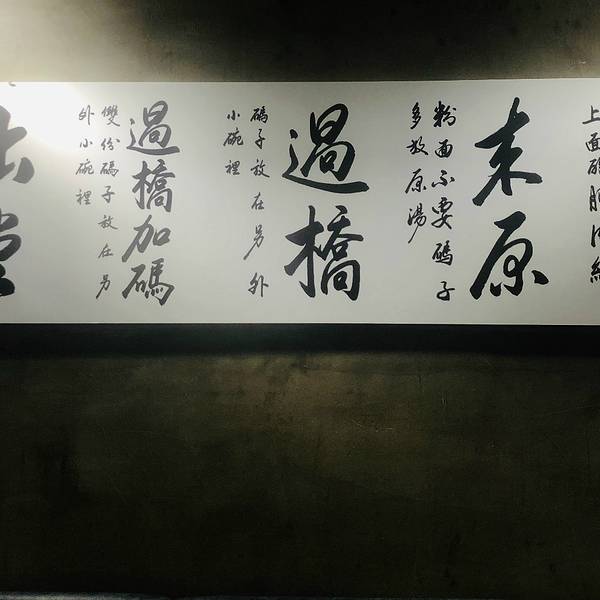 上面
來原
粉面不要碼子
多放原湯
過橋
碼子放在另外
小碗裡
過橋加碼
雙份碼子放在另
外小碗裡
堂